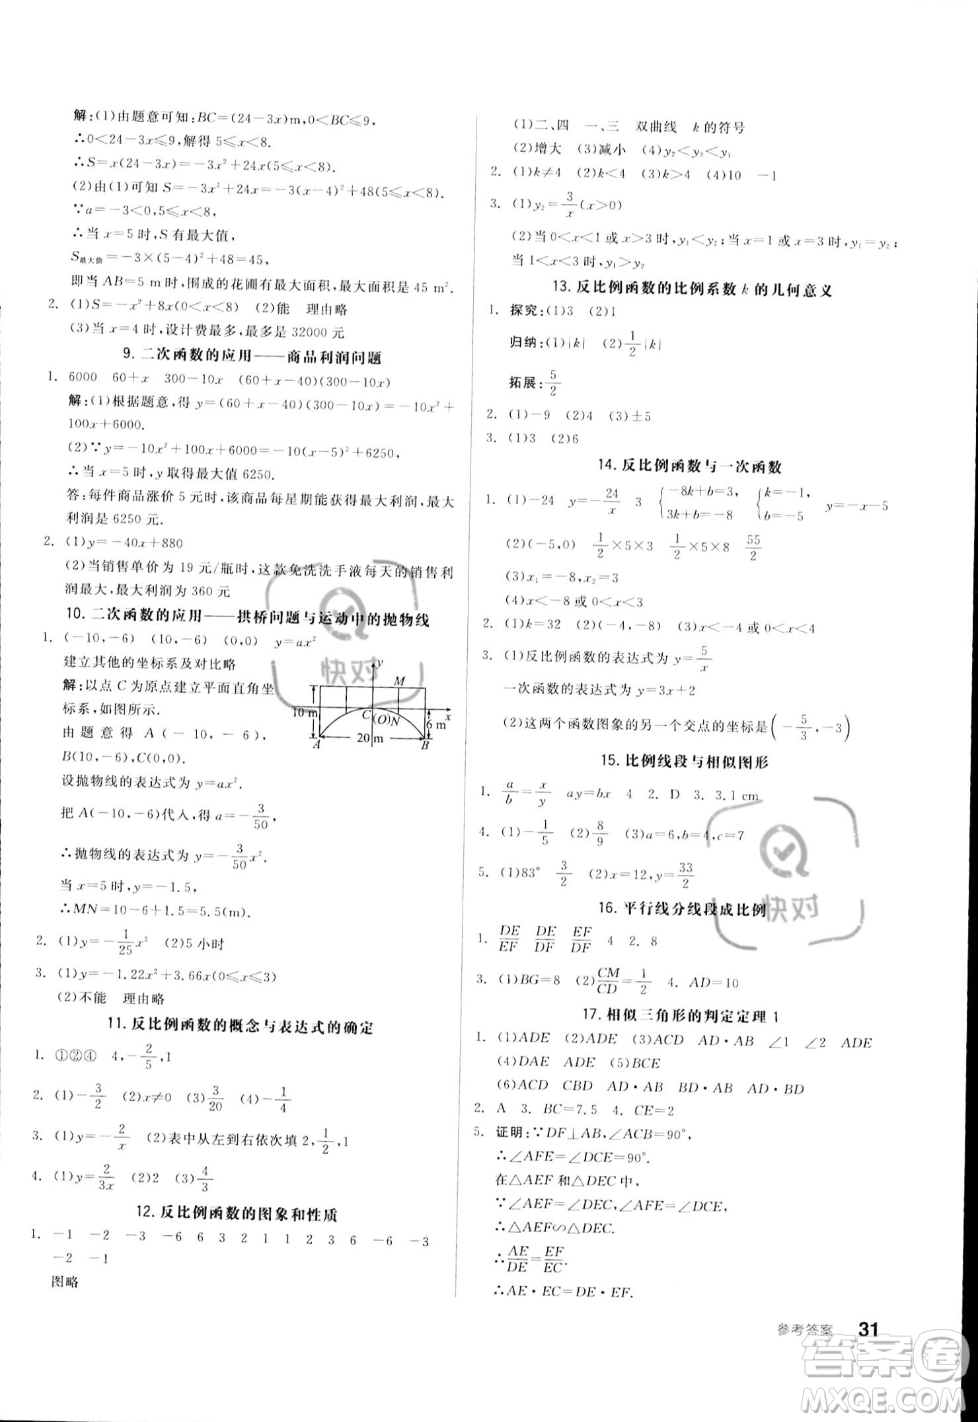 解:(1)由题意可知:BC=(24-3x)m,0<BC⩽9,
∴0<24-3x⩽9,解得 5⩽x<8.
∴S=x(24-3x)=-3x²+24x(5⩽x<8).
(2)由(1)可知 S=-3x²+24x=-3(x-4)²+48(5⩽x<8),
∵a=-3<0,5⩽x<8,
∴当 x=5 时,S 有最大值,
S最大值=-3×(5-4)²+48=45,
即当 AB=5 m 时,围成的花圃有最大面积,最大面积是 45 m².
2. (1)S=-x²+8x(0<x<8) (2)能 理由略
(3)当 x=4 时,设计费最多,最多是 32000 元
9. 二次函数的应用——商品利润问题
1. 6000 60+x 300-10x (60+x)(300-10x)
解:(1)根据题意,得 y=(60+x-40)(300-10x)=-10x²+
100x+6000.
(2)∵y=-10x²+100x+6000=-10(x-5)²+6250,
∴当 x=5 时,y 取得最大值 6250.
答:每件商品涨价 5 元时,该商品每星期能获得最大利润,最
大利润是 6250 元.
2. (1)y=-40x+880
(2)当销售单价为 19 元/瓶时,这款免洗洗手液每天的销售利
润最大,最大利润为 360 元
10. 二次函数的应用——拱桥问题与运动中的抛物线
1. (-10,-6) (10,-6) (0,0) y=ax²
建立其他的坐标系及对比略
解:以点 C 为原点建立平面直角坐
标系,如图所示.
由题意得 A(-10,-6),
B(10,-6),C(0,0).
设抛物线的表达式为 y=ax².
y M 10 m C (O) N x 6 m A 20 m B
把 A(-10,-6)代入,得 a=-3/50,
∴抛物线的表达式为 y=-3/50x².
当 x=5 时,y=-1.5,
∴MN=10-6+1.5=5.5(m).
2. (1)y=-1/25x² (2)5 小时
3. (1)y=-1.22x²+3.66x(0⩽x⩽3)
(2)不能 理由略
11. 反比例函数的概念与表达式的确定
1. ①②④ 4,-2/5,1
2. (1)-3/2 (2)x≠0 (3)3/20 (4)-1/4
3. (1)y=-2/x (2)表中从左到右依次填 2,1/2,1
4. (1)y=2/3x (2)2 (3)4/3
12. 反比例函数的图象和性质
1. -1 -2 -3 -6 6 3 2 1 1 2 3 6 -6 -3
-2 -1
图略
(1)二、四 一、三 双曲线 k 的符号
(2)增大 (3)减小 (4)y₂<y₃<y₁
2. (1)k≠4 (2)k<4 (3)k>4 (4)10 -1
3. (1)y₂=3/x(x>0)
(2)当 0<x<1 或 x>3 时,y₁<y₂;当 x=1 或 x=3 时,y₁=y₂;
当 1<x<3 时,y₁>y₂
13. 反比例函数的比例系数 k 的几何意义
1. 探究:(1)3 (2)1
归纳:(1)|k| (2)1/2|k|
拓展:5/2
2. (1)-9 (2)4 (3)±5
3. (1)3 (2)6
14. 反比例函数与一次函数
1. (1)-24 y=-24/x 3 {-8k+b=3, 3k+b=-8 {k=-1, b=-5 y=-x-5
(2)(-5,0) 1/2×5×3 1/2×5×8 55/2
(3)x₁=-8,x₂=3
(4)-8<x<0 或 x>3
2. (1)k=32 (2)-8<x<0 或 x>8
3. (1)反比例函数的表达式为 y=5/x
一次函数的表达式为 y=3x+2
(2)这两个函数图象的另一个交点的坐标是(-5/3,-3)
15. 比例线段与相似图形
1. a/b=x/y ay=bx 4 2. D 3. 3.1 cm
4. (1)-1/5 (2)8/9 (3)a=6,b=4,c=7
5. (1)83° 3/2 (2)x=12,y=33/2
16. 平行线分线段成比例
1. DE/EF DE/DF EF/DF 4 2. 8
3. (1)BG=8 (2)CM/CD=1/2 4. AD=10
17. 相似三角形的判定定理 1
1. (1)ADE (2)ADE (3)ACD AD·AB ∠1 ∠2
(4)DAE ADE (5)BCE
(6)ACD CBD AD·AB BD·AB AD·BD
2. A 3. BC=7.5 4. CE=2
5. 证明:∵DF⊥AB,∠ACB=90°,
∴∠AFE=∠DCE=90°.
在△AFE 和△DEC 中,
∵∠AEF=∠DEC,∠AFE=∠DCE,
∴△AEF∽△DEC.
∴AE/DE=EF/EC.
∴AE·EC=DE·EF.
参考答案 31
快对
快对
答案圈
MXQE.COM